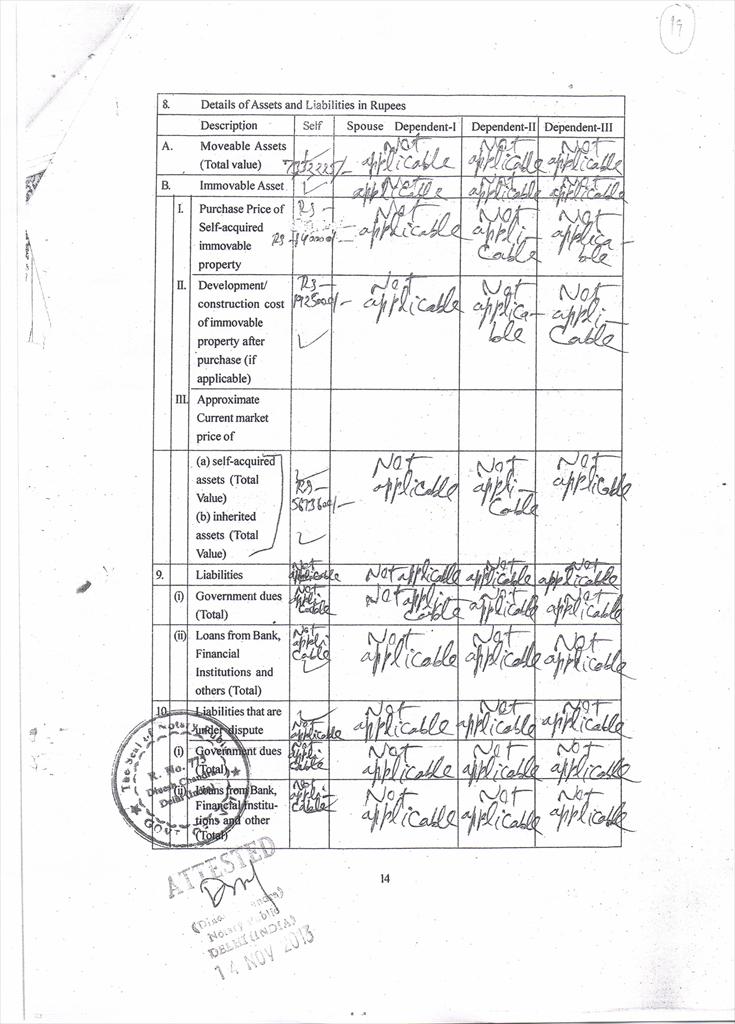 19
8. Details of Assets and Liabilities in Rupees
Description Self Spouse Dependent-I Dependent-II Dependent-III
A. Moveable Assets Not Not Not
(Total value) applicable applicable applicable
B. Immovable Asset Not applicable Not applicable Not applicable
I. Purchase Price of Rs - Not Not Not
Self-acquired applicable appli- applica-
immovable Rs Cable ble
property
II. Development/ Rs - Not Not Not
construction cost 1925000/- applicable applica- appli-
of immovable ble Cable
property after
purchase (if
applicable)
III. Approximate
Current market
price of
(a) self-acquired Not Not Not
assets (Total Rs - applicable appli- applicable
Value) 5673600/- Cable
(b) inherited
assets (Total
Value)
9. Liabilities Not applicable Not applicable Not applicable Not applicable
(i) Government dues Not appli- Not appli- Not Not
(Total) Cable Cable applicable applicable
(ii) Loans from Bank, Not Not Not Not
Financial appli- applicable applicable applicable
Institutions and Cable
others (Total)
10. Liabilities that are Not Not Not
under dispute Not applicable applicable applicable applicable
(i) Government dues Not appli- Not Not Not
(Total) Cable applicable applicable applicable
(ii) Loans from Bank, Not appli- Not Not Not
Financial Institu- Cable applicable applicable applicable
tions and other
(Total)
The Seal of Notary Public
R. No. 773
Dinesh Chandra
Delhi (India)
GOVT
14
ATTESTED
Notary Public
DELHI (INDIA)
14 NOV 2013